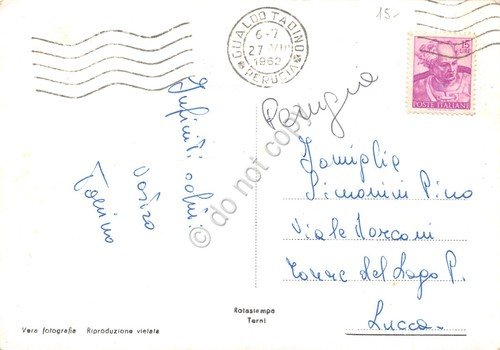 15-
GUALDO TADINO
6-7
27 VIII
1962
PERUGIA
15
LIRE
POSTE ITALIANE
Perugia
Infiniti saluti.
vostro
Tonino
Famiglia
Simonini Pino
Viale Marconi
Torre del Lago P.
Lucca.
do not copy
Rotostampa
Terni
Vera fotografia Riproduzione vietata